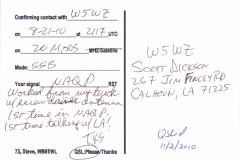 Confirming contact with W5WZ
8-21-10 at 2117 UTC
on 20 Mtrs MHZ/Satellite
Mode: SSB
Your signal NAQP RST
Worked from my truck
w/ screw driver antenna
1st time in NAQP
1st time talking w/ LA!
73, Steve, WB6TWL QSL: Please/Thanks
W5WZ
SCOTT DICKSON
267 JIM FINCEY RD
CALHOUN, LA 71225
QSL'd
11/2/2010